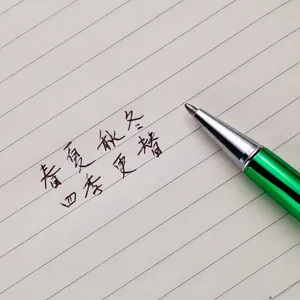 春夏秋冬
四季更替